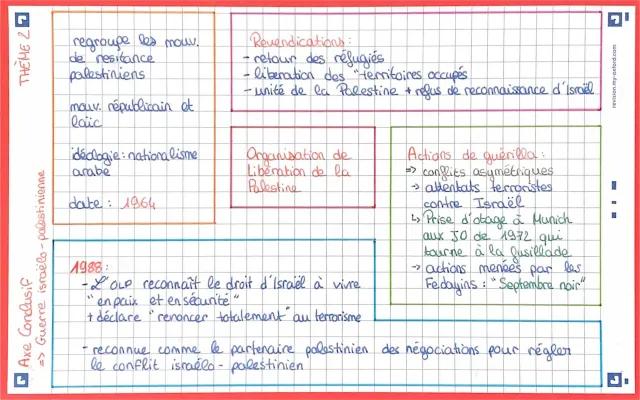 THÈME 2
Axe Conclusif
=> Guerre israélo-palestinienne
regroupe les mouv.
de resitance
palestiniens
mouv. républicain et
laïc
idéologie: nationalisme
arabe
date : 1964
Revendications :
- retour des réfugiés
- libération des "territoires occupés
- unité de la Palestine + refus de reconnaissance d'Israël
revision.my-oxford.com
Organisation de
Libération de la
Palestine
Actions de guérilla :
=> conflits asymétriques
→ attentats terroristes
contre Israël
↳ Prise d'otage à Munich
aux JO de 1972 qui
tourne à la fusillade
→ actions menées par les
Fedayins : "Septembre noir"
1988 :
- L'OLP reconnaît le droit d'Israël à vivre
"en paix et en sécurité"
+ déclare "renoncer totalement" au terrorisme
- reconnue comme le partenaire palestinien des négociations pour régler
le conflit israélo-palestinien